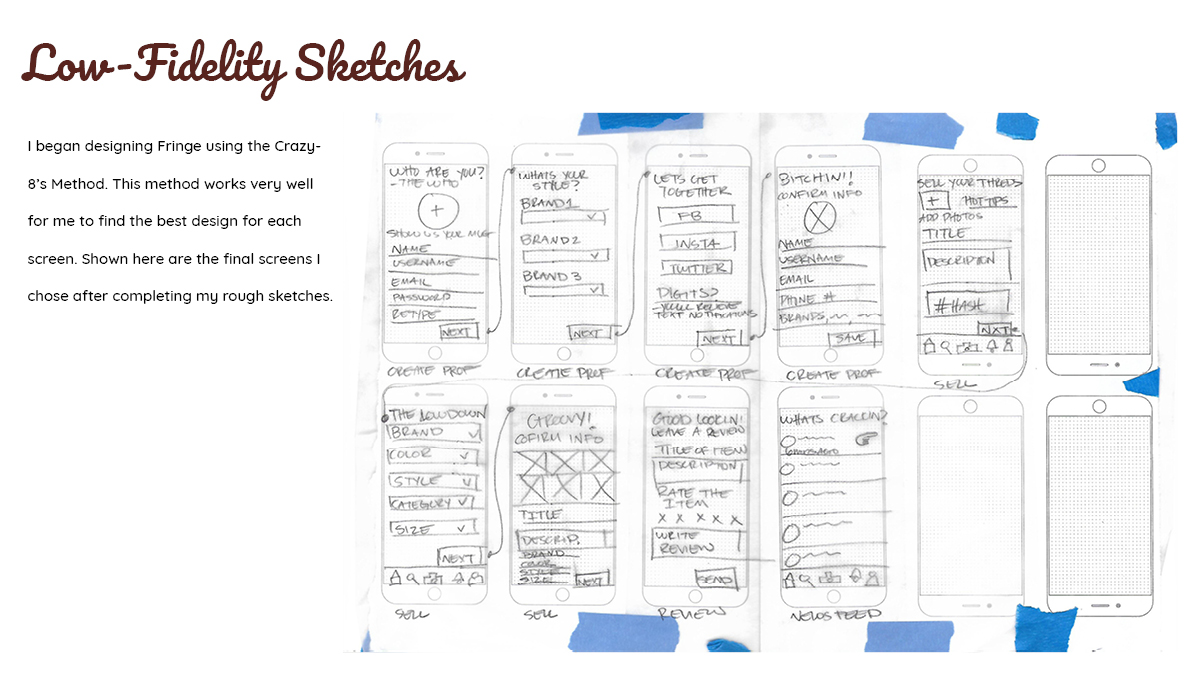 Low-Fidelity Sketches
I began designing Fringe using the Crazy-
8's Method. This method works very well
for me to find the best design for each
screen. Shown here are the final screens I
chose after completing my rough sketches.
WHO ARE YOU?
- THE WHO
+
SHOW US YOUR MUG
NAME
USERNAME
EMAIL
PASSWORD
RETYPE
NEXT
CREATE PROF
WHATS YOUR
STYLE?
BRAND 1
BRAND 2
BRAND 3
NEXT
CREATE PROF
LETS GET
TOGETHER
FB
INSTA
TWITTER
DIGITS?
TEXT NOTIFICATIONS
NEXT
CREATE PROF
BITCHIN!!
CONFIRM INFO
NAME
USERNAME
EMAIL
PHONE #
BRANDS
SAVE
CREATE PROF
SELL YOUR THREDS
+ HOT TIPS
ADD PHOTOS
TITLE
DESCRIPTION
#HASH
NXT
SELL
THE LOWDOWN
BRAND
COLOR
STYLE
CATEGORY
SIZE
NEXT
SELL
GROOVY!
COFIRM INFO
TITLE
DESCRIP.
BRAND
COLOR
STYLE
SIZE
NEXT
SELL
GOOD LOOKIN!
LEAVE A REVIEW
TITLE OF ITEM
DESCRIPTION
RATE THE
ITEM
X X X X X
WRITE
REVIEW
SEND
REVIEW
WHATS CRACKIN?
NEWS FEED